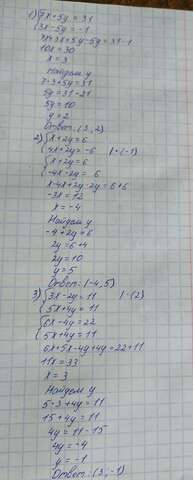 1) {7x + 5y = 31
{3x - 5y = -1
7x + 3x + 5y - 5y = 31 - 1
10x = 30
x = 3
Найдем y
7·3 + 5y = 31
5y = 31 - 21
5y = 10
y = 2
Ответ: (3; 2)
2) {x + 2y = 6
{4x + 2y = -6 |·(-1)
{x + 2y = 6
{-4x - 2y = 6
x - 4x + 2y - 2y = 6 + 6
-3x = 12
x = -4
Найдем y
-4 + 2y = 6
2y = 6 + 4
2y = 10
y = 5
Ответ: (-4; 5)
3) {3x - 2y = 11 |·(2)
{5x + 4y = 11
{6x - 4y = 22
{5x + 4y = 11
6x + 5x - 4y + 4y = 22 + 11
11x = 33
x = 3
Найдем y
5·3 + 4y = 11
15 + 4y = 11
4y = 11 - 15
4y = -4
y = -1
Ответ: (3; -1)